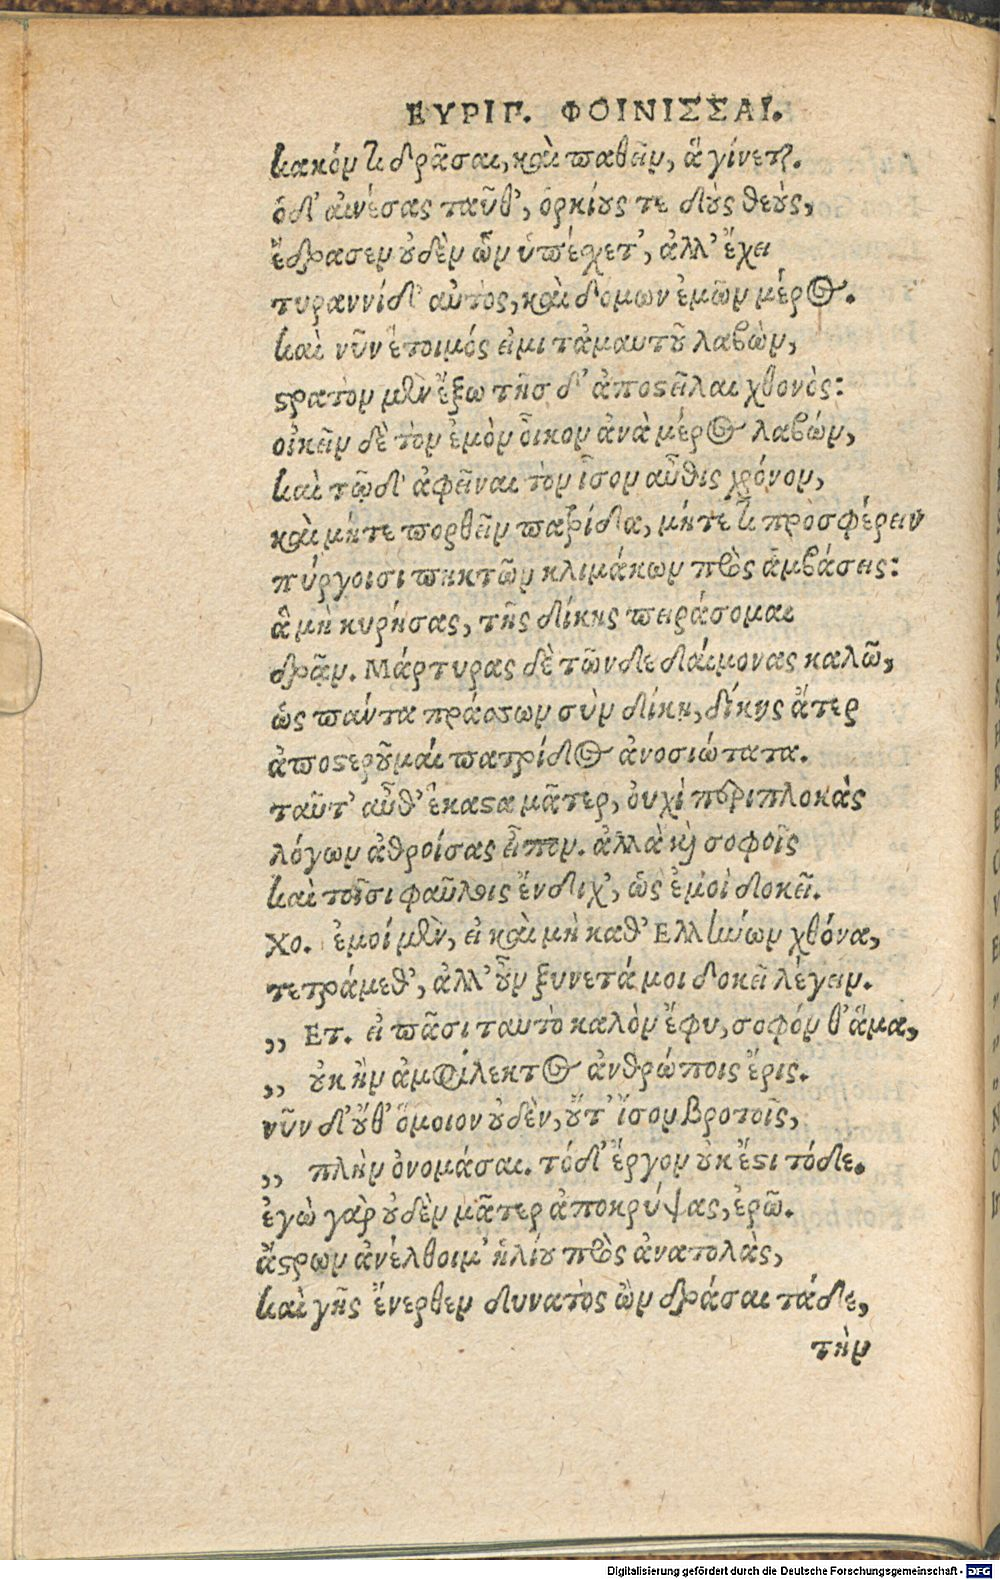 ΕΥΡΙΠ. ΦΟΙΝΙΣΣΑΙ.
κακόν τι δρᾶσαι, καὶ παθεῖν, ἃ γίνεται.
ὁδ' αἰνέσας ταῦθ', ὁρκίους τε δοὺς θεοὺς,
ἔδρασεν οὐδὲν ὧν ὑπέχετ', ἀλλ' ἔχει
τυραννίδ' αὐτὸς, καὶ δόμων ἐμῶν μέρος.
καὶ νῦν ἕτοιμός εἰμι τἀμαυτοῦ λαβὼν,
στρατὸν μὲν ἔξω τῆσδ' ἀποστεῖλαι χθονὸς:
οἰκεῖν δὲ τὸν ἐμὸν οἶκον ἀνὰ μέρος λαβών,
καὶ τῷδ' ἀφεῖναι τὸν ἴσον αὖθις χρόνον,
καὶ μήτε πορθεῖν πατρίδα, μήτε τι προσφέρειν
πύργοισι πηκτῶν κλιμάκων πρὸς ἀμβάσεις:
ἃ μὴ κυρήσας, τῆς δίκης πειράσομαι
δρᾷν. Μάρτυρας δὲ τῶνδε δαίμονας καλῶ,
ὡς πάντα πράσσων σὺν δίκη, δίκης ἄτερ
ἀποστεροῦμαι πατρίδος ἀνοσιώτατα.
ταῦτ' αὖθ' ἕκαστα μᾶτερ, οὐχὶ περιπλοκὰς
λόγων ἀθροίσας εἶπον. ἀλλὰ καὶ σοφοῖς
καὶ τοῖσι φαύλοις ἔνδιχ', ὡς ἐμοὶ δοκεῖ.
Χο. ἐμοί μὲν, εἰ καὶ μὴ καθ' Ελλήνων χθόνα,
τετράμεθ', ἀλλ' οὖν ξυνετά μοι δοκεῖ λέγειν.
,, Ετ. εἰ πᾶσι ταυτὸ καλὸν ἔφυ, σοφόν θ' ἅμα,
,, οὐκ ἦν ἀμφίλεκτος ἀνθρώποις ἔρις.
νῦν δ' οὔθ' ὅμοιον οὐδὲν, οὔτ' ἴσον βροτοῖς,
,, πλὴν ὀνομάσαι. τόδ' ἔργον οὐκ ἔστι τόδε.
ἐγὼ γὰρ οὐδὲν μᾶτερ ἀποκρύψας, ἐρῶ.
ἄστρων ἀνέλθοιμ' ἡλίου πρὸς ἀνατολὰς,
καὶ γῆς ἔνερθεν δυνατὸς ὢν δράσαι τάδε,
τὴν
Digitalisierung gefördert durch die Deutsche Forschungsgemeinschaft - DFG